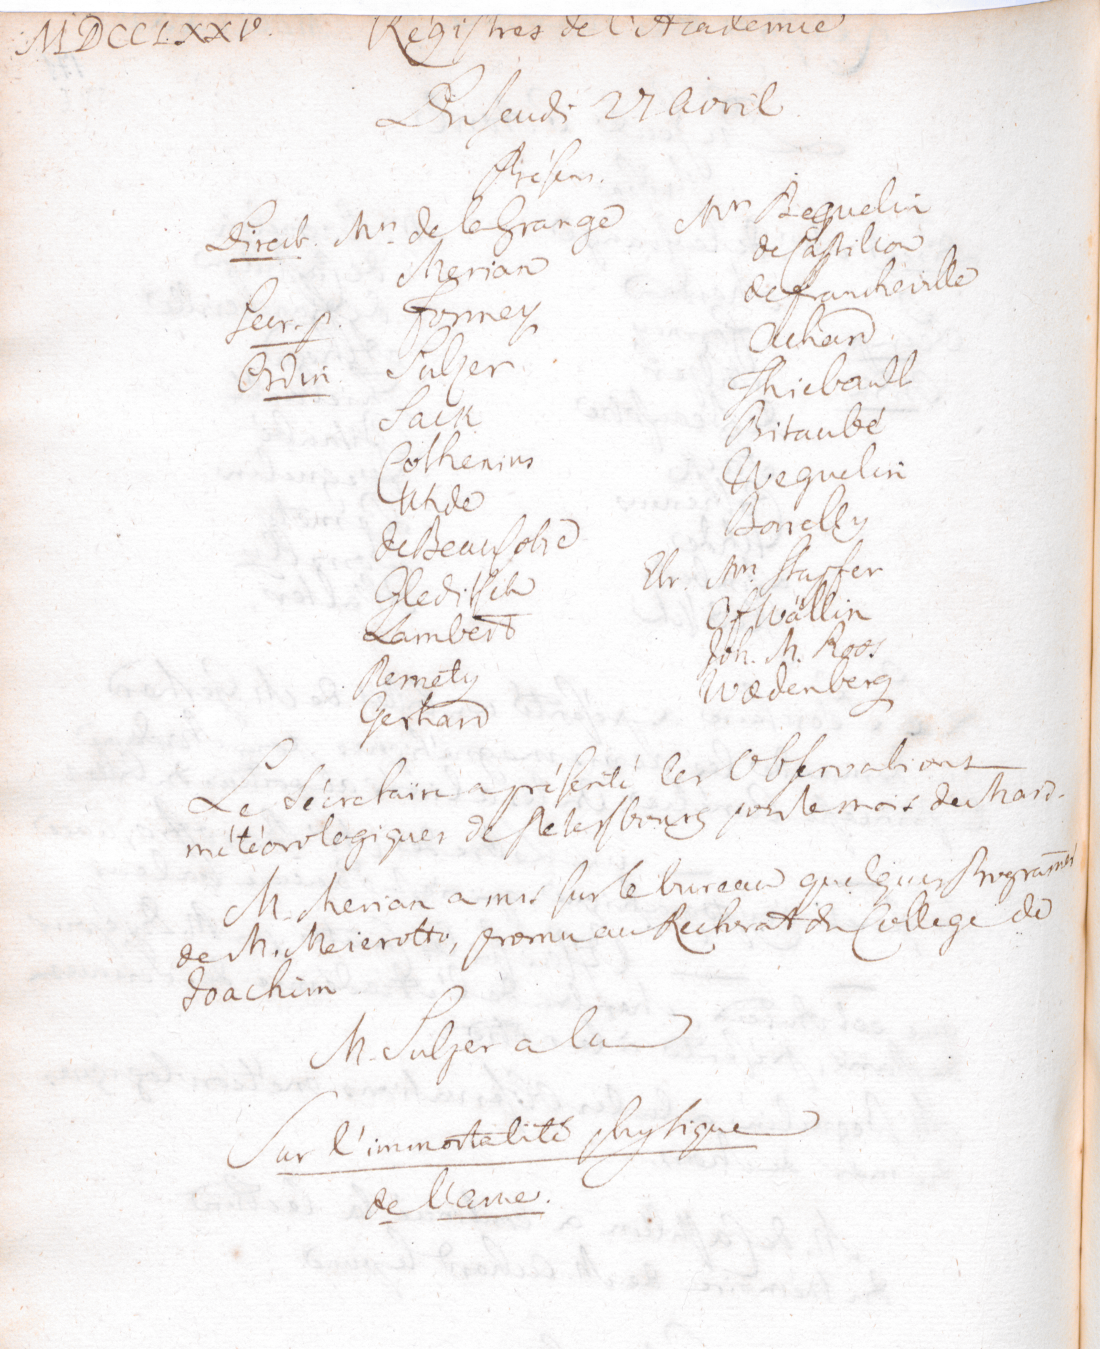 MDCCLXXV. Régistres de l'Academie
Du Jeudi 27 Avril
Présens.
Direct. Mrs. de la Grange
Merian
Secr. p. Formey
Ordin Sulzer
Sack
Cothenius
Uhde
de Beausobre
Gleditsch
Lambert
Pernety
Gerhard
Mrs Beguelin
de Castillon
de Francheville
Achard
Thiebault
Bitaubé
Weguelin
Borrelly
Etr. Mrs. Stapfer
Of Wällin
Joh. M. Roos
Wædenberg
Le Sécretaire a présenté les Observations
météorologiques de Petersbourg pour le mois de Mars.
M. Merian a mis sur le bureau quelques Programmes
de M. Meierotto, promu au Rectorat du College de
Joachim
M. Sulzer a lu
Sur l'immortalité physique
de l'ame.